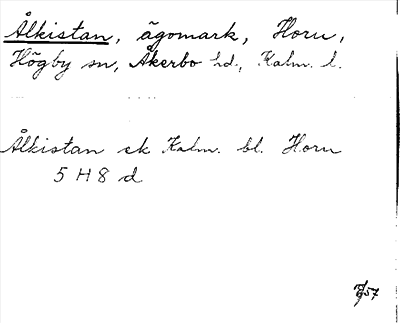 Ålkistan, ägomark, Horn,
Högby sn, Åkerbo hd., Kalm. l.
Ålkistan ek Kalm. bl. Horn
5 H 8 d